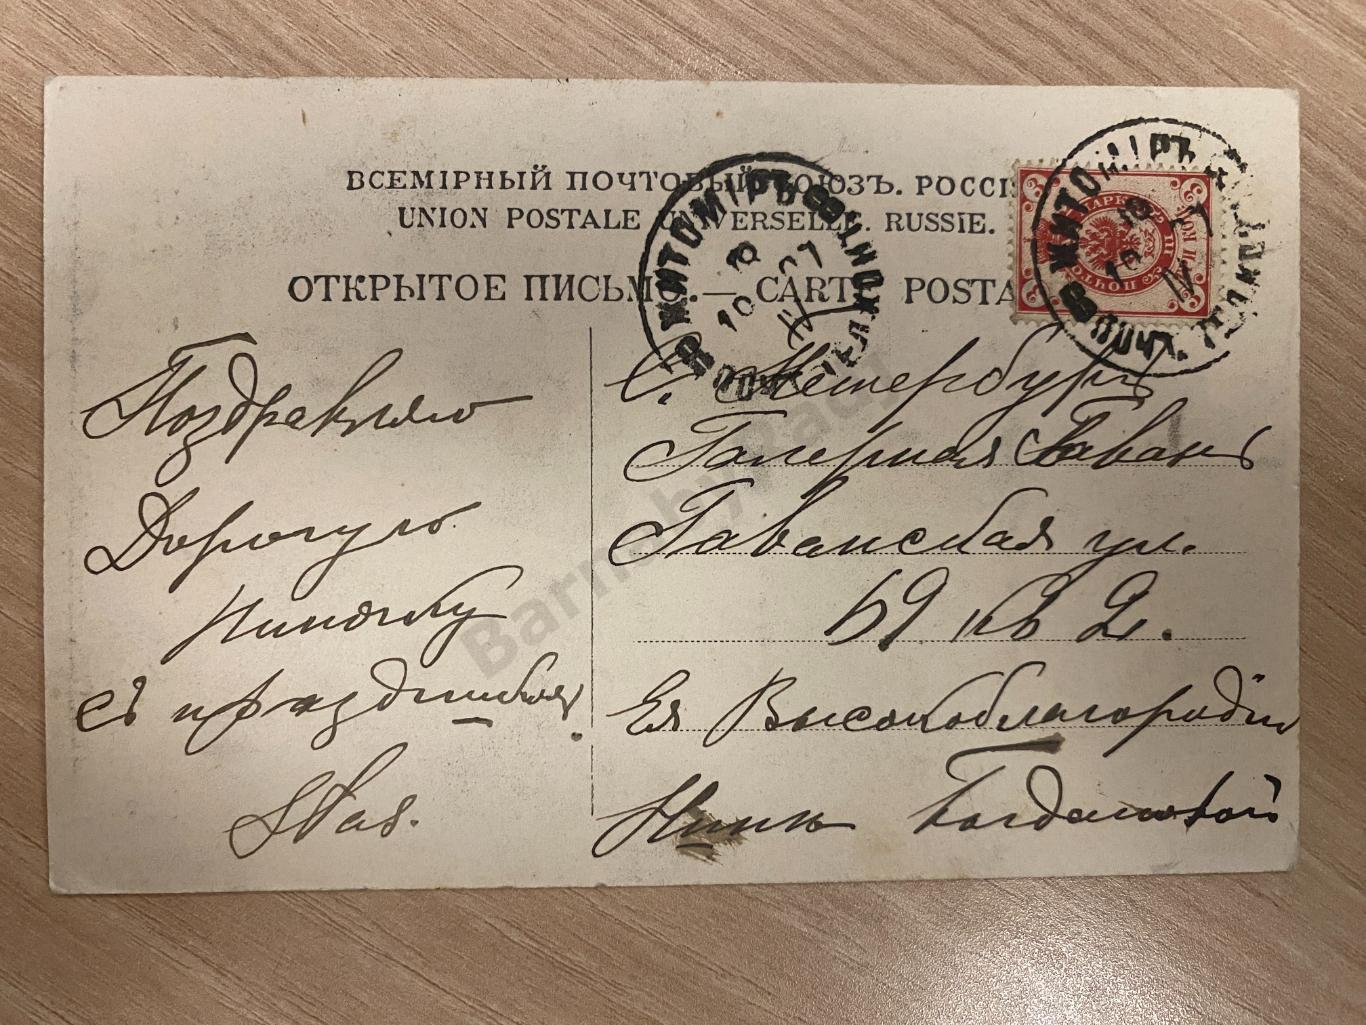 ВСЕМІРНЫЙ ПОЧТОВЫЙ СОЮЗЪ. РОССІЯ
UNION POSTALE UNIVERSELLE. RUSSIE.
ОТКРЫТОЕ ПИСЬМО. — CARTE POSTALE
ЖИТОМІРЪ
10 IV 07
ЖИТОМІРЪ
10 IV
3 3
Поздравляю
Дорогую
Ниночку
съ праздникомъ.
С. Петербургъ
Галерная Гавань
Гаванская ул.
59 кв 2.
Ея Высокоблагородію
Нинѣ Богдановой